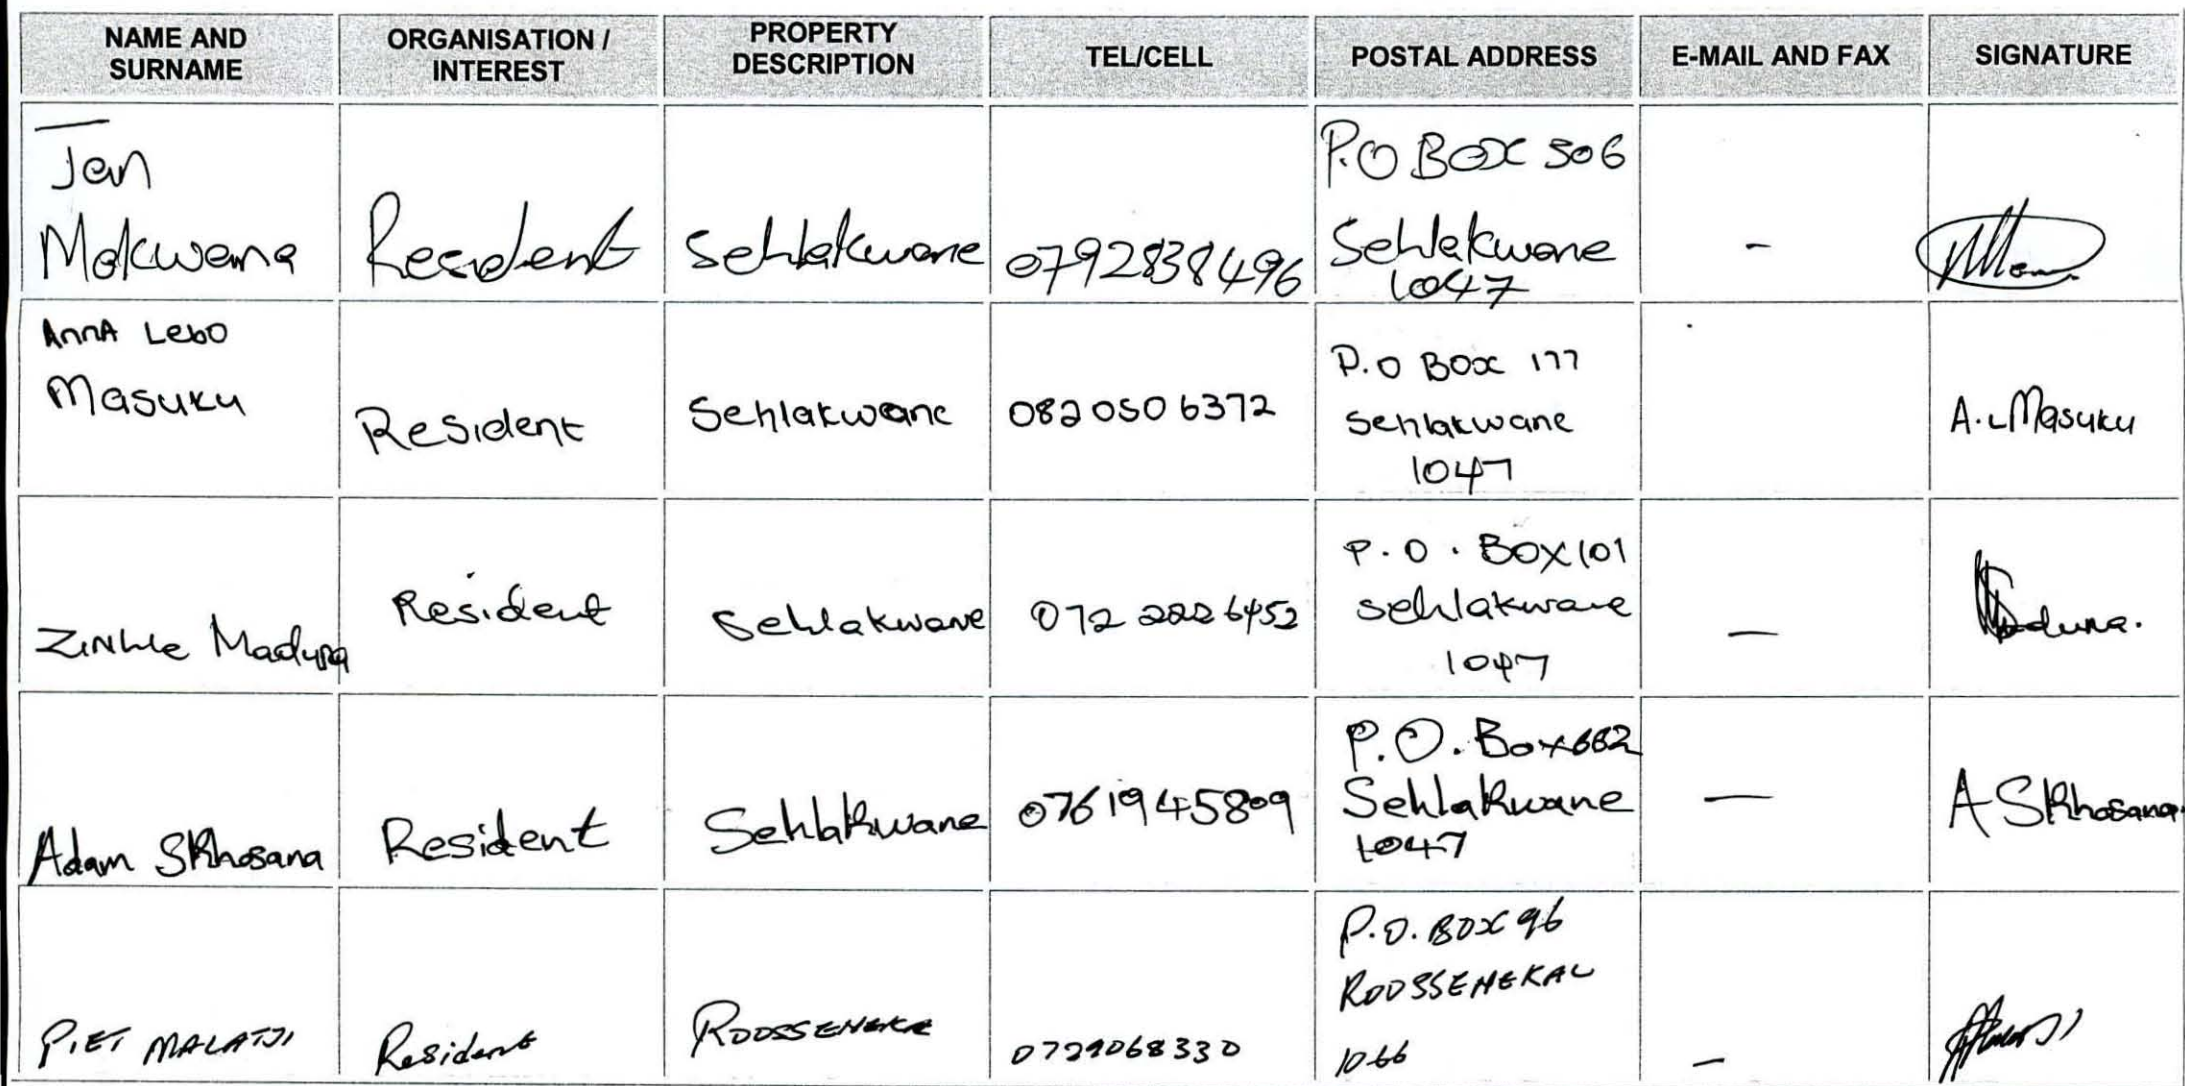 NAME AND SURNAME
ORGANISATION / INTEREST
PROPERTY DESCRIPTION
TEL/CELL
POSTAL ADDRESS
E-MAIL AND FAX
SIGNATURE
Jan
Mokwena
Resident
Sehlakwane
0792838496
P.O BOX 506
Sehlakwane
1047
-
AnnA Lebo
Masuku
Resident
Sehlakwane
0820506372
P.O BOX 177
Sehlakwane
1047
A.L Masuku
ZiNhle Maduna
Resident
Sehlakwane
072 2226452
P.O. BOX 101
Sehlakwane
1047
—
Maduna.
Adam SKhosana
Resident
Sehlakwane
0761945809
P.O. Box 682
Sehlakwane
1047
—
A SKhosana.
PIET MALATJI
Resident
ROOSSENEKAL
0729068330
P.O. BOX 96
ROOSSENEKAL
1066
—